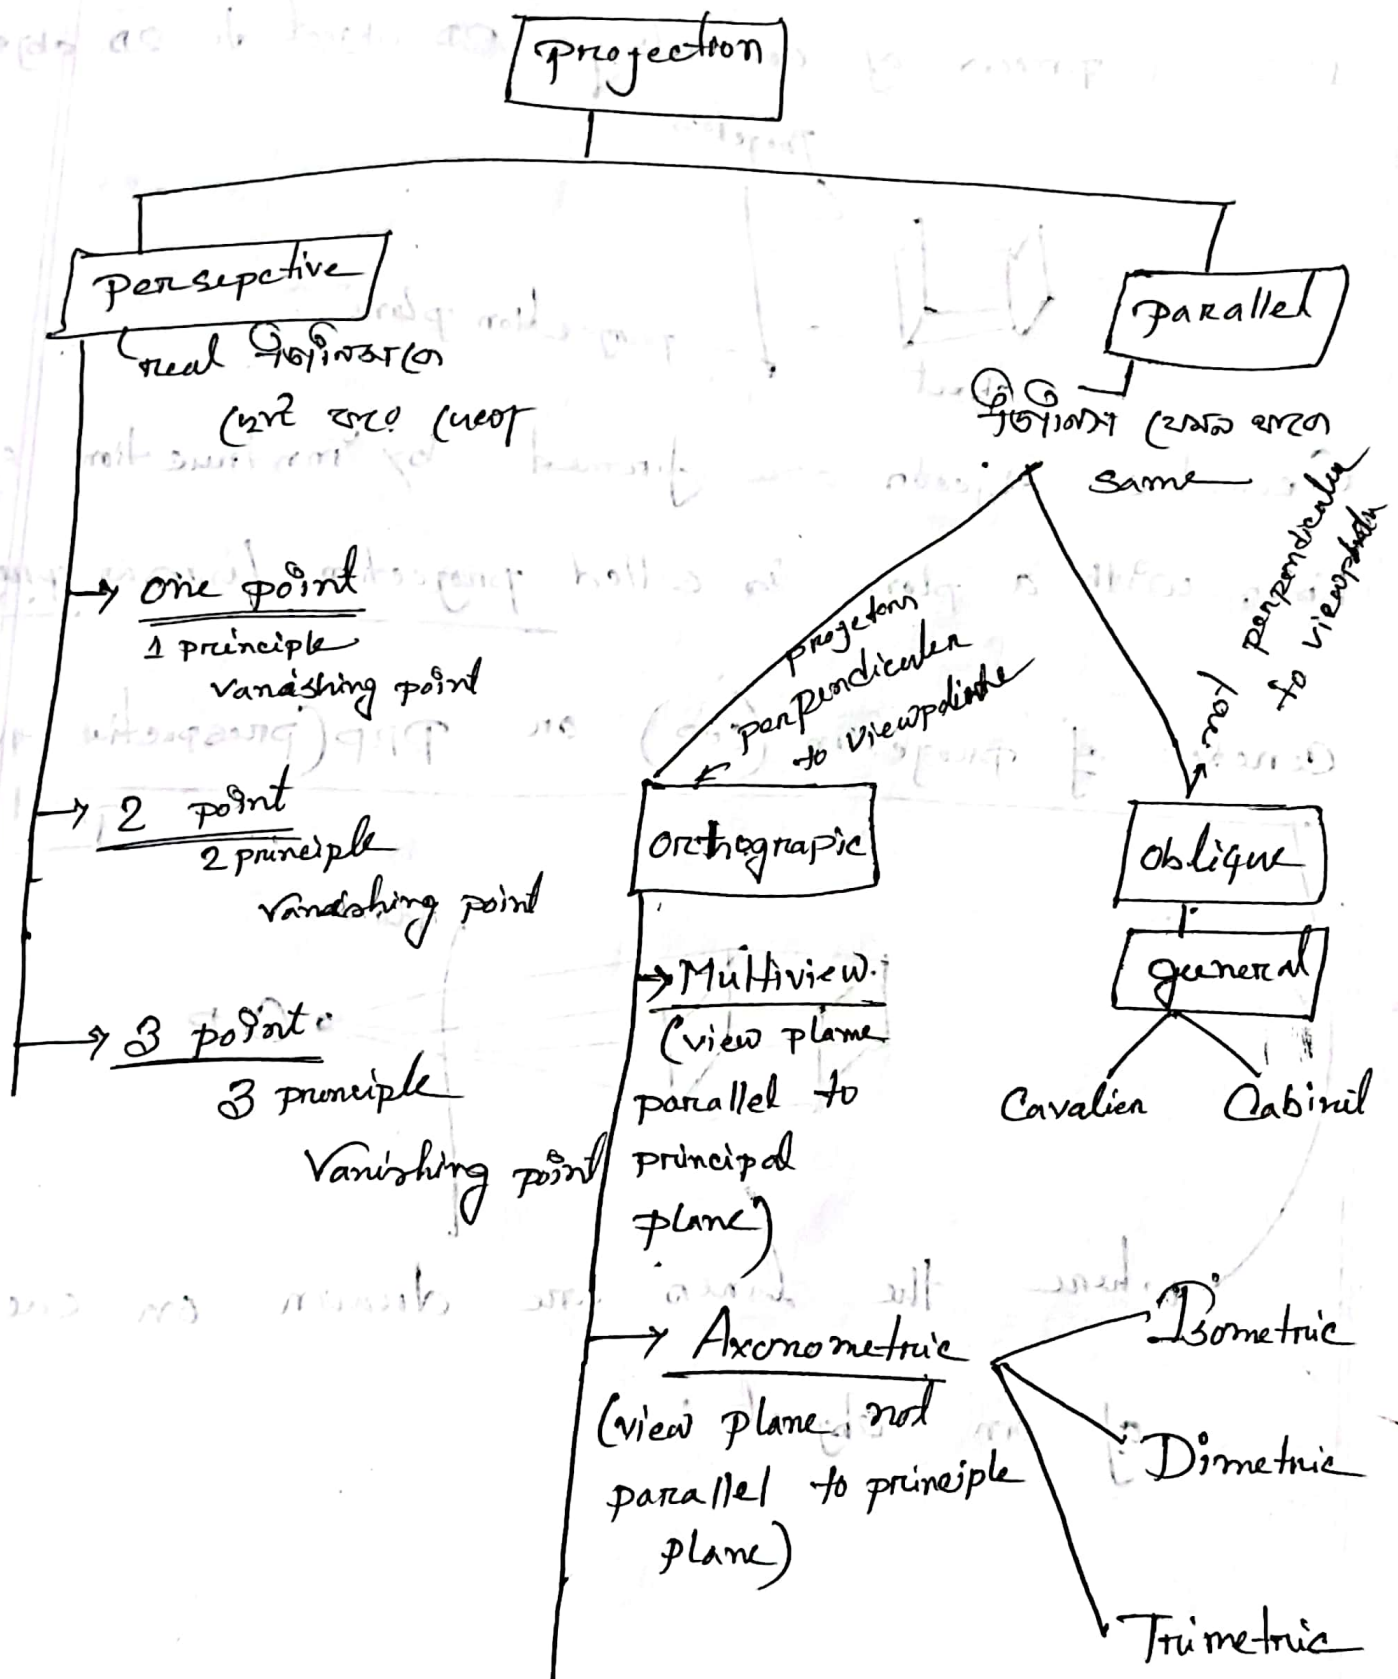 Projection
Persepctive
real জিনিসকে
ছোট করে দেখে
one point
1 principle
vanishing point
2 point
2 principle
vanishing point
3 point
3 principle
Vanishing point
parallel
জিনিস যেমন থাকে
same
projetors
perpendicular
to viewplane
not perpendicular
to viewplane
orthograpic
Multiview
(view plane
parallel to
principal
plane)
Axonometric
(view plane not
parallel to principle
plane)
Isometric
Dimetric
Trimetric
oblique
general
Cavalier
Cabinil